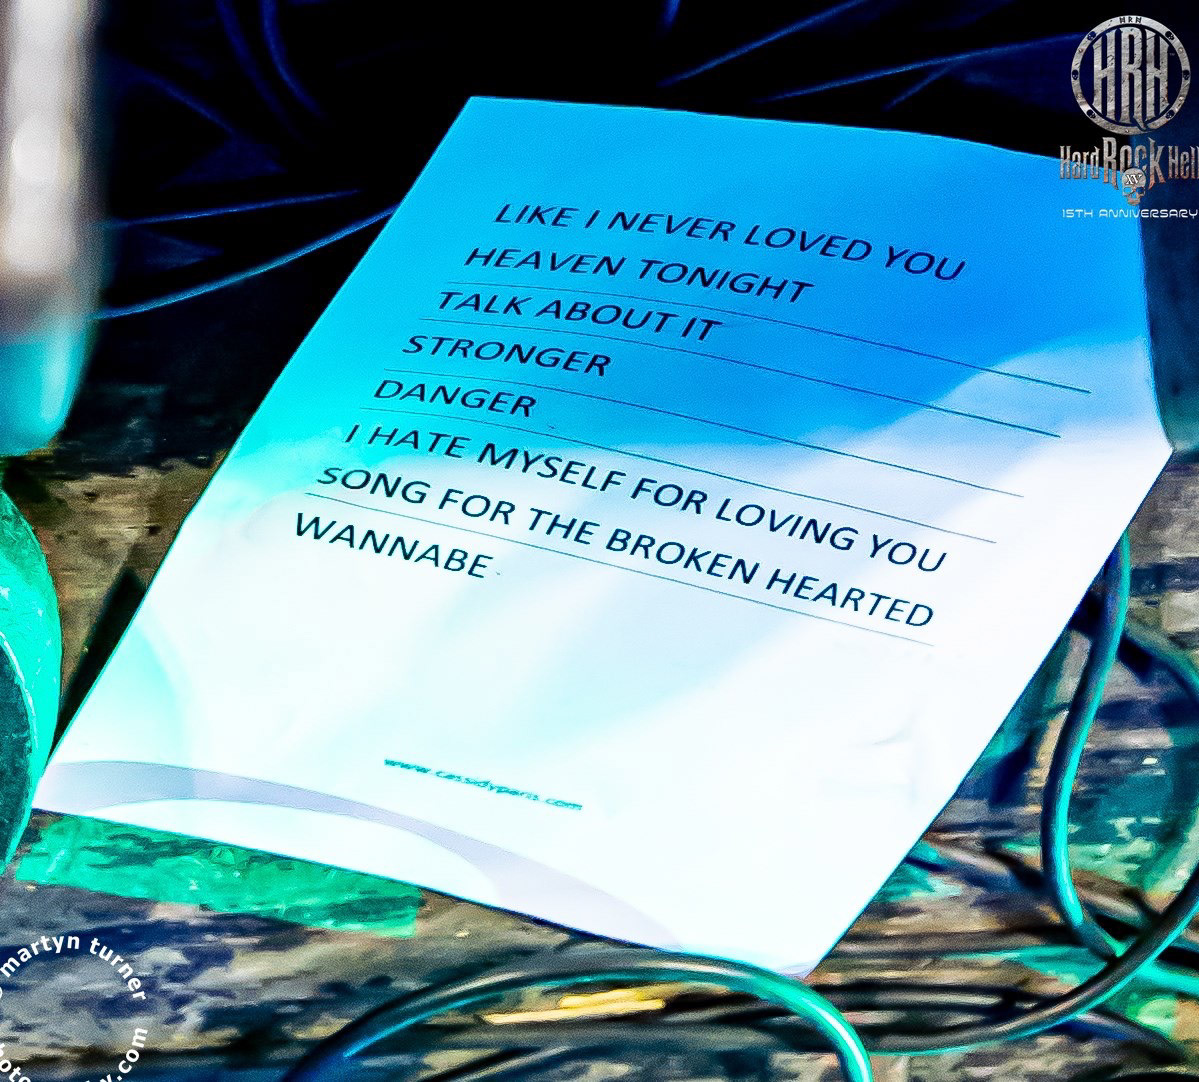 HRH
HRH
Hard Rock Hell
XV
15TH ANNIVERSARY
LIKE I NEVER LOVED YOU
HEAVEN TONIGHT
TALK ABOUT IT
STRONGER
DANGER
I HATE MYSELF FOR LOVING YOU
SONG FOR THE BROKEN HEARTED
WANNABE
www.cassidyparis.com
martyn turner